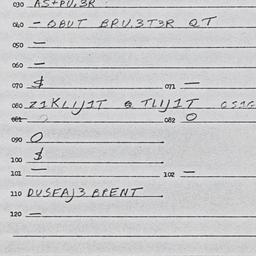 030 AS+PU.3R
040 - OBUT BPU.3T3R QT
050 —
060 —
070 $ 071 —
080 Z1KLIJ1T @ TLIJ1T
081 082 O
090 O
100 $
101 — 102 —
110 DUSFAJ3 BPENT
120 —